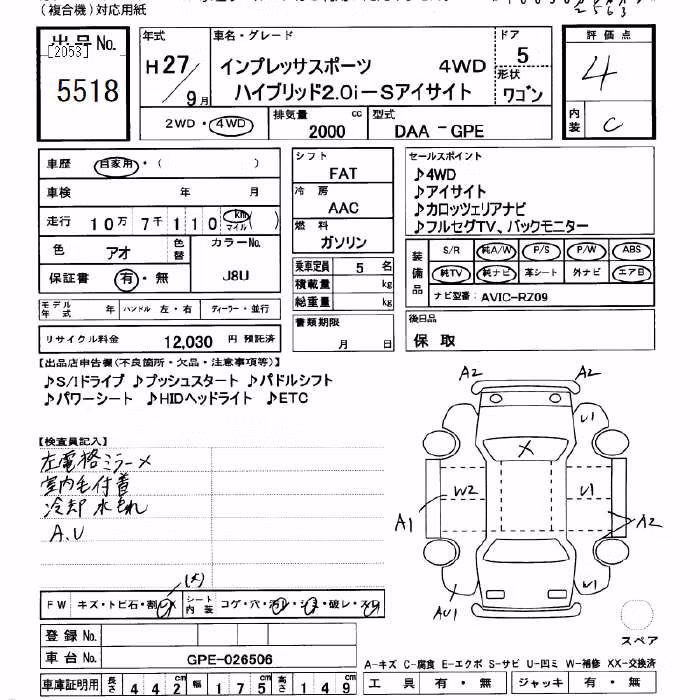 (複合機)対応用紙
2563
出品No.
[2053]
5518
年式
H27/9月
車名・グレード
インプレッサスポーツ 4WD
ハイブリッド2.0i-Sアイサイト
ドア
5
形状
ワゴン
2WD・4WD
排気量
2000 cc
型式
DAA-GPE
評価点
4
内装
C
車歴 自家用・( )
車検 年 月
走行 10万7千110 km マイル ( )
色 アオ 色替
カラーNo. J8U
保証書 有・無
シフト
FAT
冷房
AAC
燃料
ガソリン
乗車定員 5 名
積載量 kg
総重量 kg
セールスポイント
♪4WD
♪アイサイト
♪カロッツェリアナビ
♪フルセグTV、バックモニター
装備品
S/R 純A/W P/S P/W ABS
純TV 純ナビ 革シート 外ナビ エアB
ナビ型番: AVIC-RZ09
モデル年式 年 ハンドル 左・右 ディーラー・並行
リサイクル料金 12,030 円 預託済
書類期限
月 日
後日品
保 取
【出品店申告欄(不良箇所・欠品・注意事項等)】
♪S/Iドライブ ♪プッシュスタート ♪パドルシフト
♪パワーシート ♪HIDヘッドライト ♪ETC
【検査員記入】
左電格ミラーメ
室内毛付着
冷却水もれ
A.U
A2 A2
U1
X
W2 U1
A1 A2
AU1
スペア
(X)
FW キズ・トビ石・割・X
シート内装 コゲ・穴・汚レ・シミ・破レ・スレ
登録No.
車台No. GPE-026506
車庫証明用 長さ 442cm 幅 175cm 高さ 149cm
A-キズ C-腐食 E-エクボ S-サビ U-凹ミ W-補修 XX-交換済
工具 有・無 ジャッキ 有・無